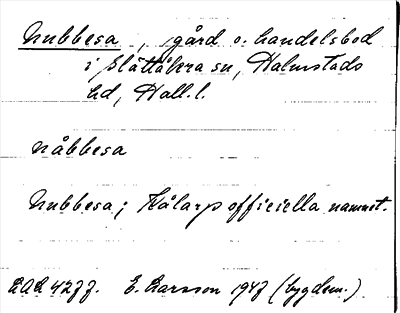 Nubbesa, gård o. handelsbod
i Slättåkra sn, Halmstads
hd, Hall.l.
nåbbesa
Nubbesa; Kålarp officiella namnet.
E. Larsson 1947 (bygdem.)